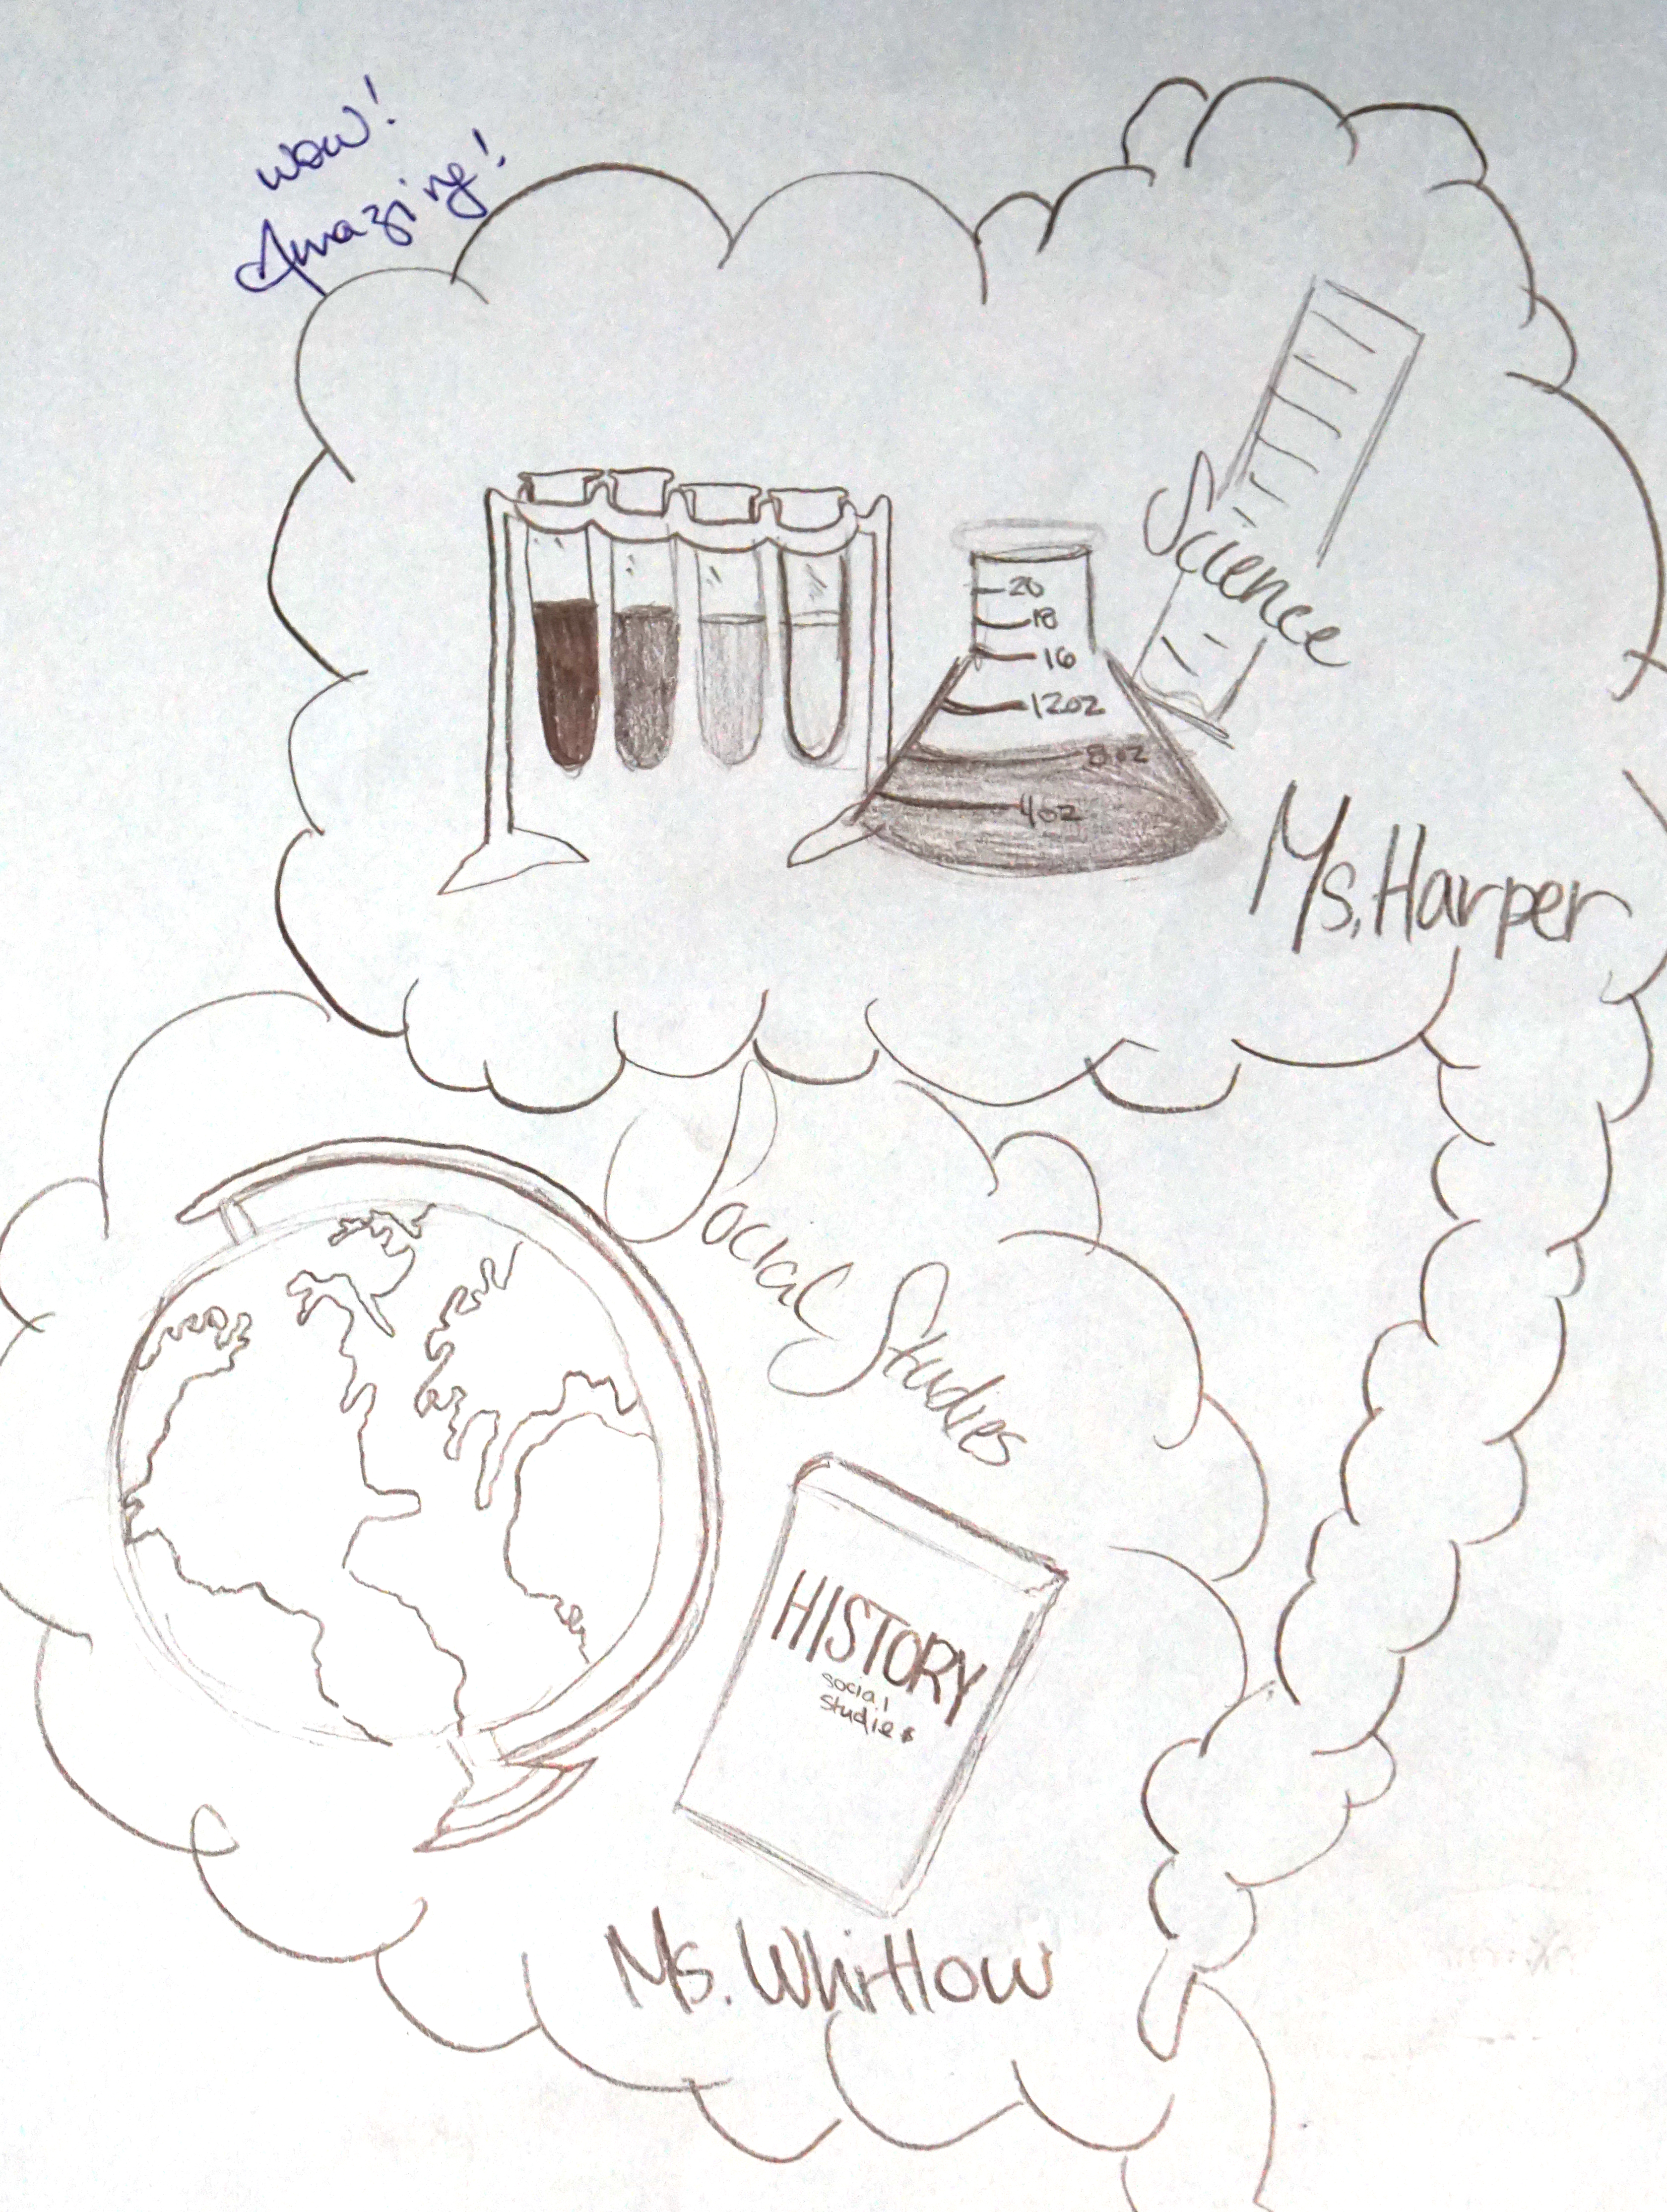 wow!
Amazing!
Science
20
18
16
12oz
8oz
4oz
Ms. Harper
Social Studies
HISTORY
social
studies
Ms. Whittlow